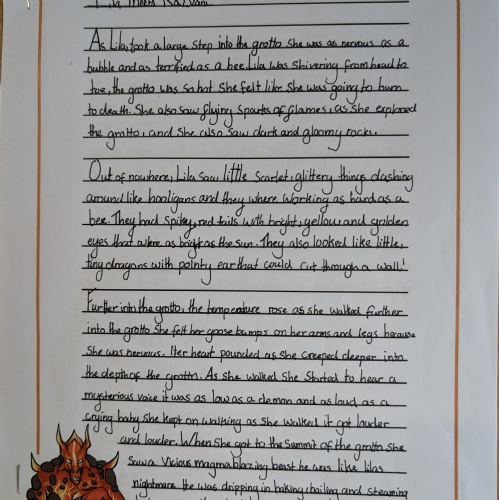 Lila meets Razvani
As Lila took a large step into the grotto she was as nervous as a
bubble and as terrified as a bee. Lila was shivering from head to
toe, the grotto was so hot she felt like she was going to burn
to death. She also saw flying sparks of flames, as she explored
the grotto, and she also saw dark and gloomy rocks.
Out of nowhere, Lila saw little scarlet, glittery things dashing
around like hooligans and they where working as hard as a
bee. They had spikey, red tails with bright, yellow and golden
eyes that where as bright as the sun. They also looked like little,
tiny dragons with pointy ear that could cut through a wall!
Further into the grotto, the temperature rose as she walked further
into the grotto she felt her goose bumps on her arms and legs because
she was nervous. Her heart pounded as she creeped deeper into
the depth of the grotto. As she walked she started to hear a
mysterious voice it was as low as a demon and as loud as a
crying baby she kept on walking as she walked it got louder
and louder. When she got to the summit of the grotto she
saw a vicious magma blazing beast he was like lilas
nightmare. He was dripping in baking, boiling and steaming